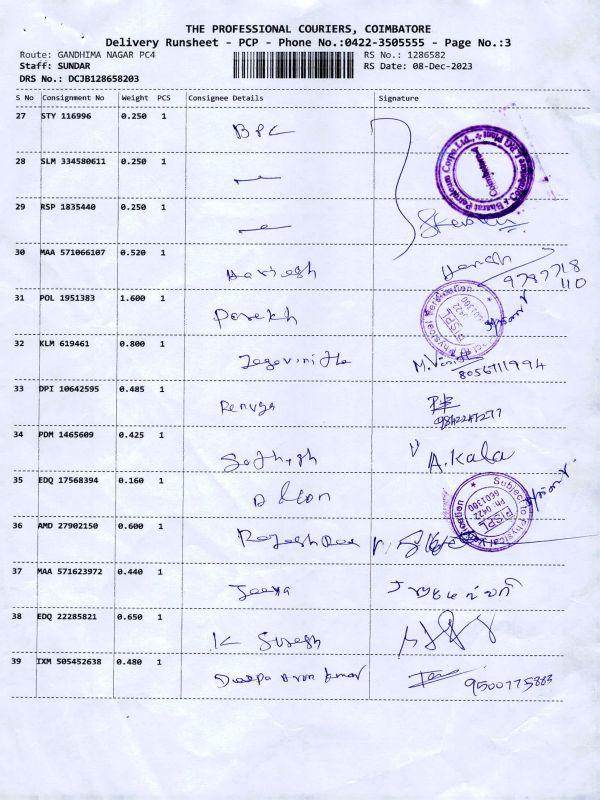 THE PROFESSIONAL COURIERS, COIMBATORE
Delivery Runsheet - PCP - Phone No.:0422-3505555 - Page No.:3
Route: GANDHIMA NAGAR PC4 RS No.: 1286582
Staff: SUNDAR RS Date: 08-Dec-2023
DRS No.: DCJB128658203
S No Consignment No Weight PCS Consignee Details Signature
27 STY 116996 0.250 1 BPC
28 SLM 334580611 0.250 1
29 RSP 1835440 0.250 1
30 MAA 571066107 0.520 1 Harish
9787718
110
31 POL 1951383 1.600 1 Parekh
32 KLM 619461 0.800 1 Jagavinitha M.Vinitha
8056711994
33 DPI 10642595 0.485 1 Renuga
9842247277
34 PDM 1465609 0.425 1 Sathish A.Kala
35 EDQ 17568394 0.160 1
36 AMD 27902150 0.600 1
37 MAA 571623972 0.440 1 Jeeva
38 EDQ 22285821 0.650 1 K Suresh
39 IXM 505452638 0.480 1 Deepa Arun kumar
9500775883
Bharat Petroleum Corpn. Ltd.,
Coimbatore
Subject to Physical Verification
PISPL
Ph: 0422
6601300